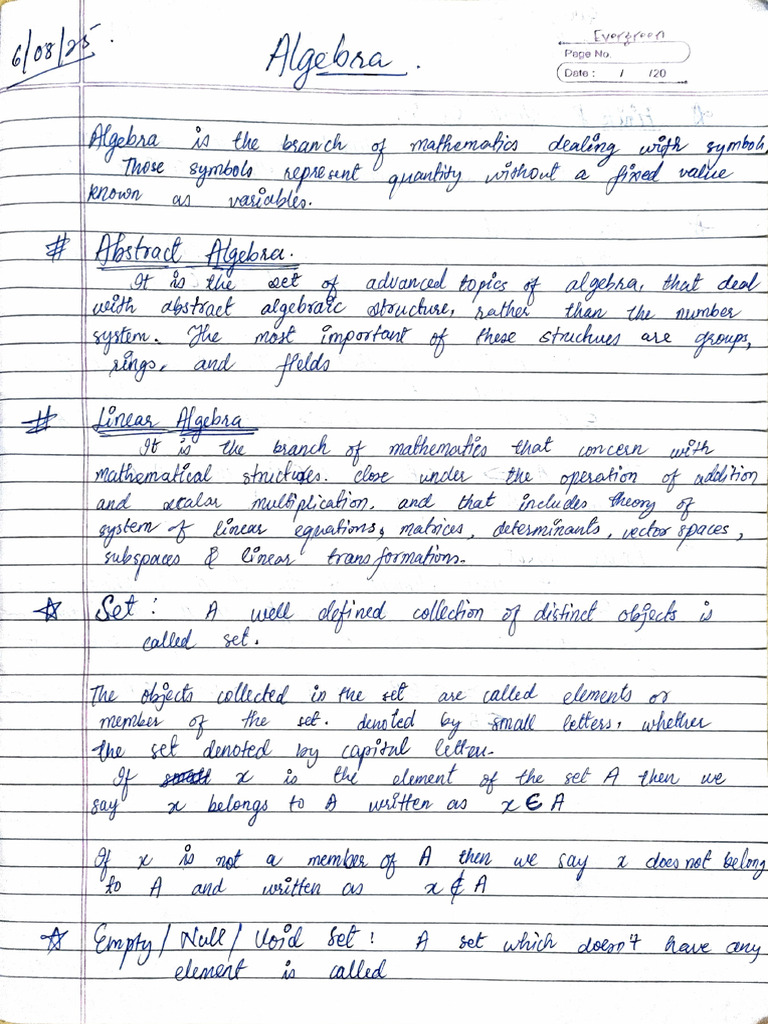 6/08/25.
Algebra.
Evergreen
Page No.
Date : / /20
Algebra is the branch of mathematics dealing with symbols.
Those symbols represent quantity without a fixed value
known as variables.
# Abstract Algebra.
It is the set of advanced topics of algebra, that deal
with abstract algebraic structure, rather than the number
system. The most important of these structures are groups,
rings, and fields
# Linear Algebra
It is the branch of mathematics that concern with
mathematical structures. close under the operation of addition
and scalar multiplication, and that includes theory of
system of linear equations, matrices, determinants, vector spaces,
subspaces & linear transformations.
☆ Set : A well defined collection of distinct objects is
called set.
The objects collected in the set are called elements or
member of the set. denoted by small letters, whether
the set denoted by capital letter.
If x is the element of the set A then we
say x belongs to A written as x ∈ A
If x is not a member of A then we say x does not belong
to A and written as x ∉ A
☆ Empty / Null / Void Set : A set which doesn't have any
element is called